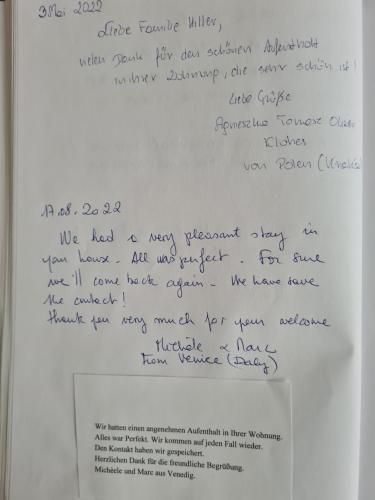 3 Mai 2022
Liebe Familie Hiller,
vielen Dank für den schönen Aufenthalt
in ihrer Wohnung, die sehr schön ist!
Liebe Grüße
Agnieszka Tomasz
von Polen
17.08.2022
We had a very pleasant stay in
your house. All was perfect. For sure
we'll come back again. We have save
the contact!
thank you very much for your welcome
Michèle & Marc
from Venice (Italy)
Wir hatten einen angenehmen Aufenthalt in Ihrer Wohnung.
Alles war Perfekt. Wir kommen auf jeden Fall wieder.
Den Kontakt haben wir gespeichert.
Herzlichen Dank für die freundliche Begrüßung.
Michéele und Marc aus Venedig.